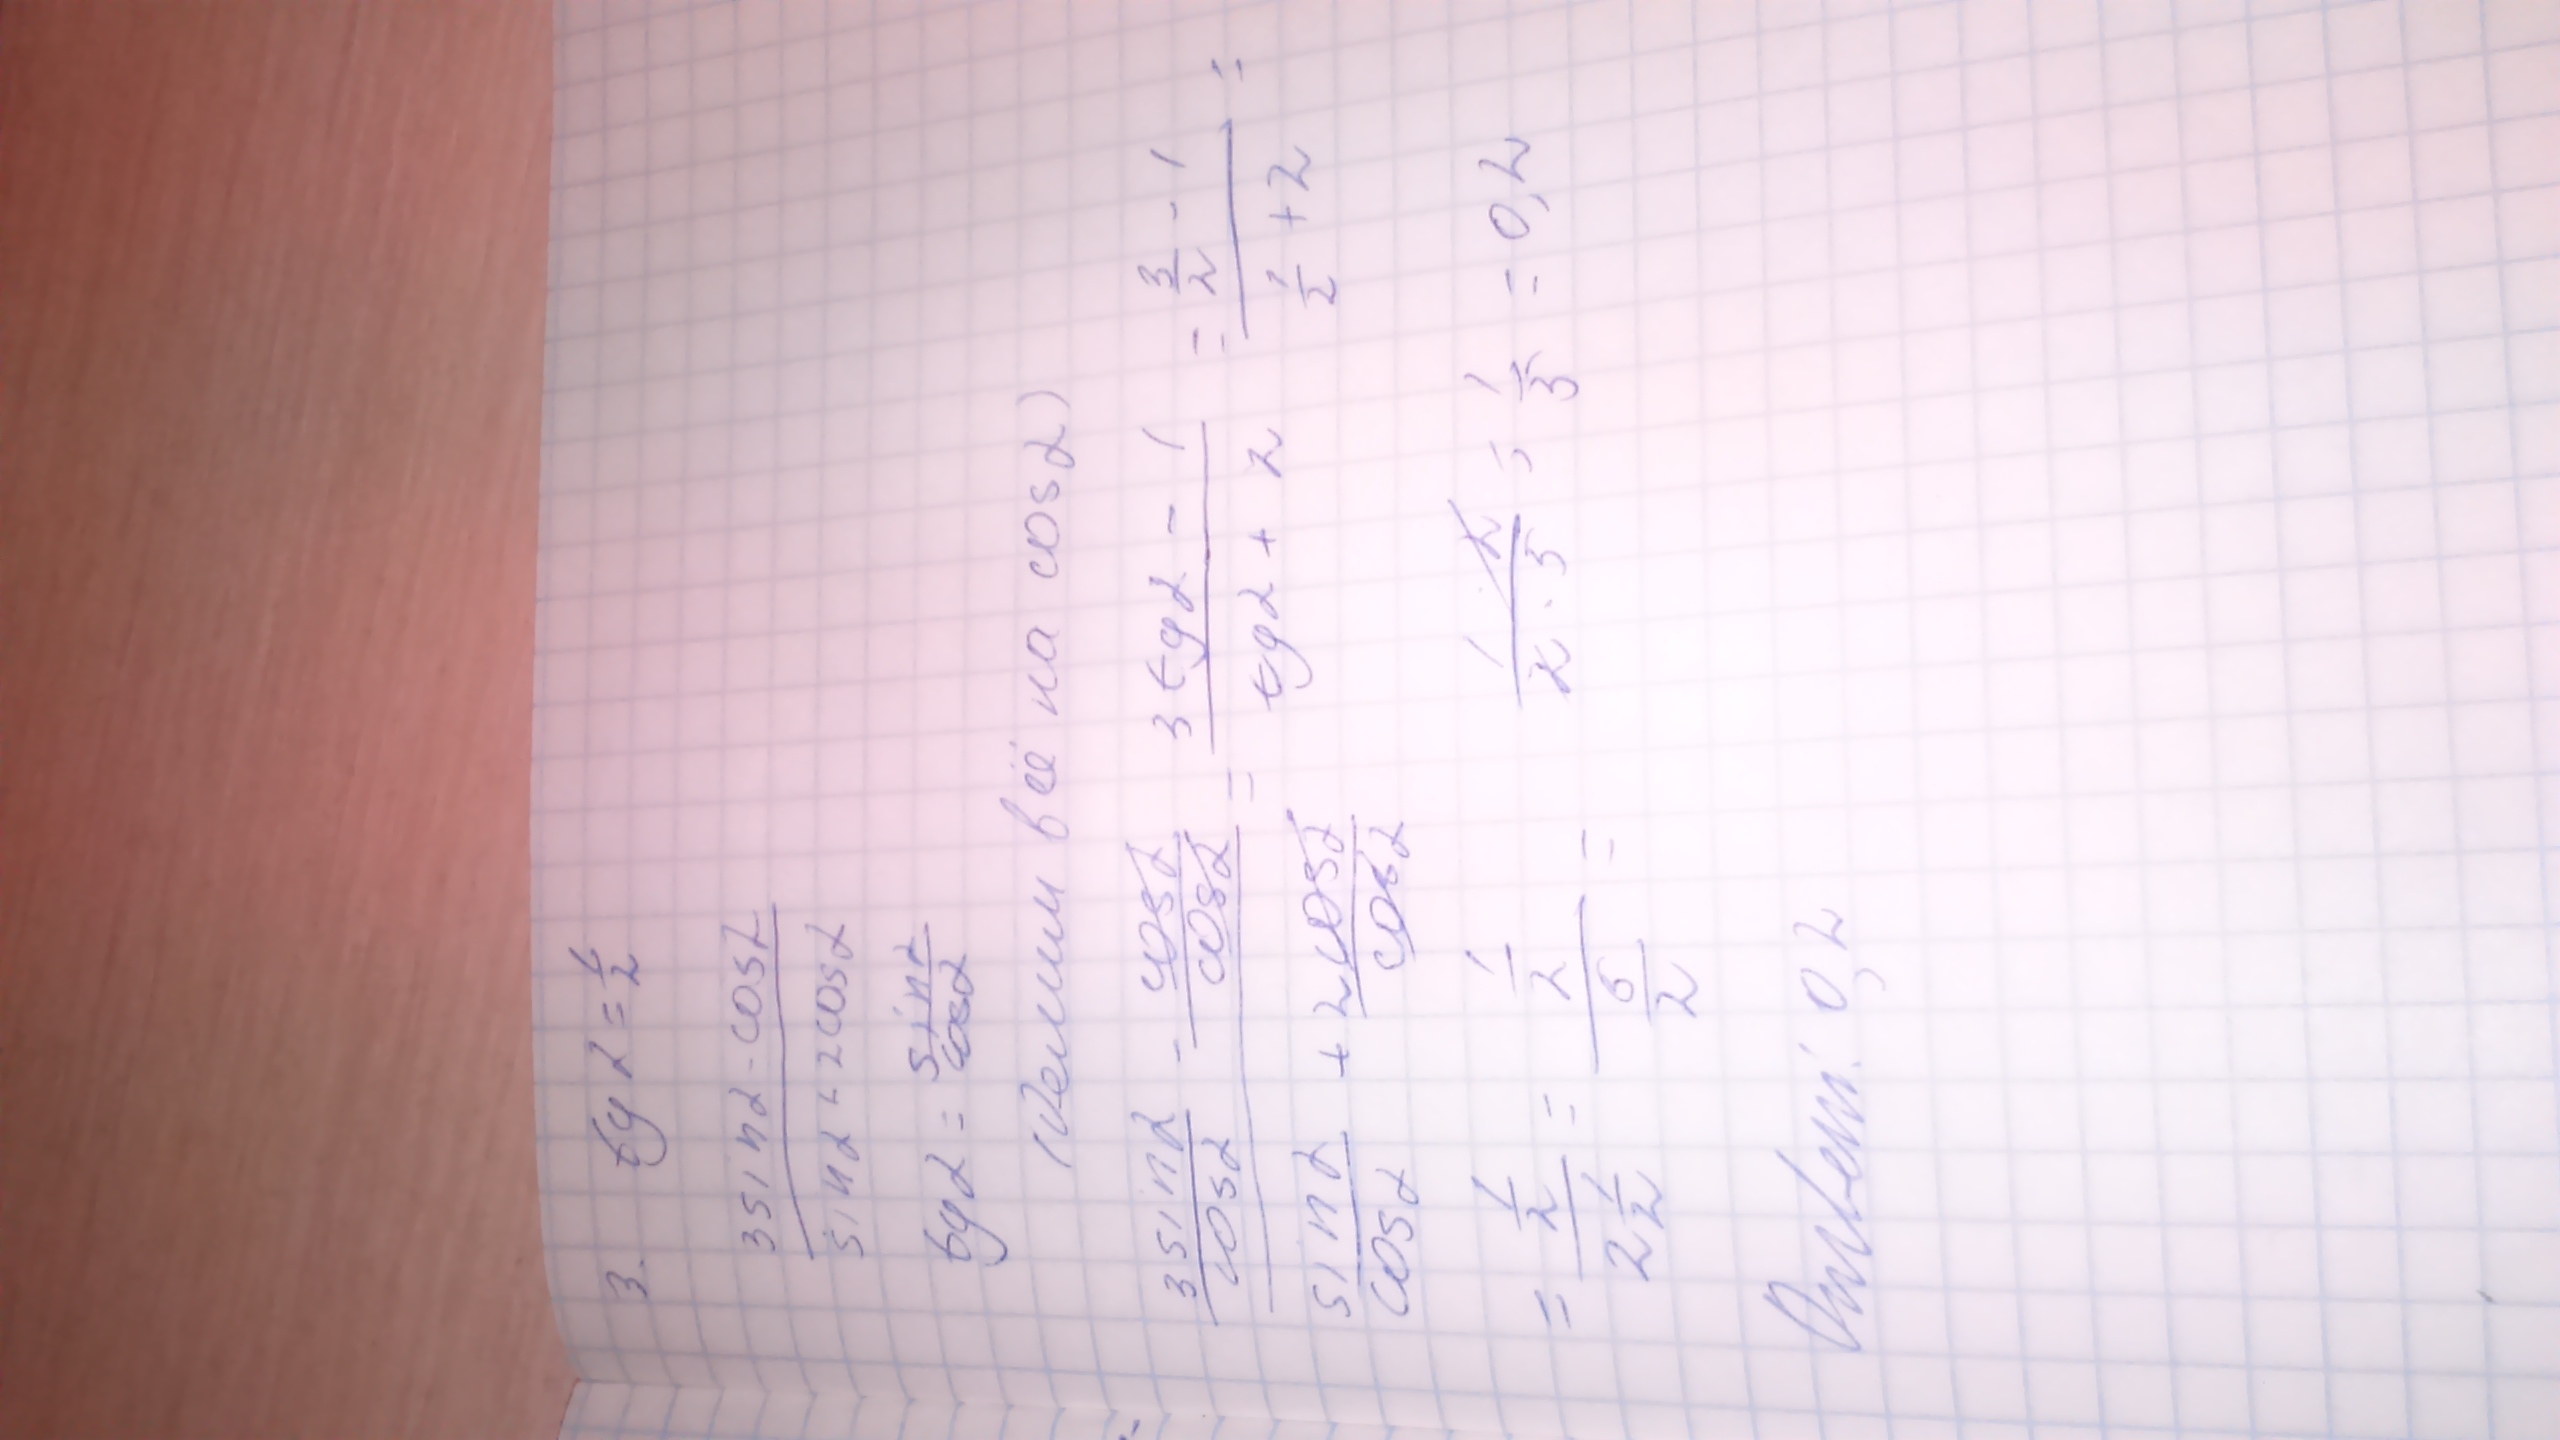 3. tg α = 1/2
(3 sin α - cos α)/(sin α + 2 cos α)
tg α = sin α/cos α
(Делим всё на cos α)
(3 sin α/cos α - cos α/cos α)/(sin α/cos α + 2 cos α/cos α) = (3 tg α - 1)/(tg α + 2) = (3/2 - 1)/(1/2 + 2) =
= (1/2)/(2 1/2) = (1/2)/(5/2) = (1 · 2)/(2 · 5) = 1/5 = 0,2
Ответ: 0,2